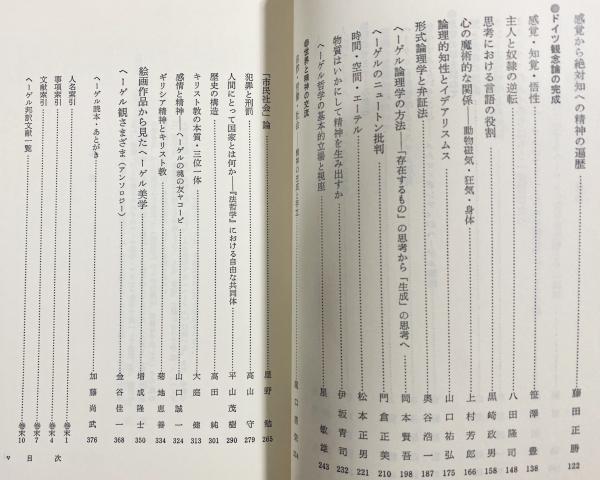 感覚から絶対知への精神の遍歴……藤田正勝 122
●ドイツ観念論の完成
感覚・知覚・悟性……笹澤豊 138
主人と奴隷の逆転……八田隆司 148
思考における言語の役割……黒崎政男 158
心の魔術的な関係——動物磁気・狂気・身体……上村芳郎 166
論理的知性とイデアリスムス……山口祐弘 175
形式論理学と弁証法……奥谷浩一 187
ヘーゲル論理学の方法——「存在するもの」の思考から「生成」の思考へ……岡本賢吾 198
ヘーゲルのニュートン批判……門倉正美 210
時間・空間・エーテル……松本正男 221
物質はいかにして精神を生み出すか……伊坂青司 232
ヘーゲル哲学の基本的立場と視座……星敏雄 243
●世界と精神の交流
「市民社会」論……星野勉 265
犯罪と刑罰……高山守 279
人間にとって国家とは何か——『法哲学』における自由な共同体……平山茂樹 290
歴史の構造……高田純 301
キリスト教の本質・三位一体……大庭健 313
感情と精神——ヘーゲルの魂の友ヤコービ……山口誠一 324
ギリシア精神とキリスト教……菊地恵善 334
絵画作品から見たヘーゲル美学……増成隆士 350
ヘーゲル観さまざま〈アンソロジー〉……金谷佳一 368
ヘーゲル読本・あとがき……加藤尚武 376
人名索引……巻末1
事項索引……巻末4
文献索引……巻末7
ヘーゲル邦訳文献一覧……巻末10
v 目次